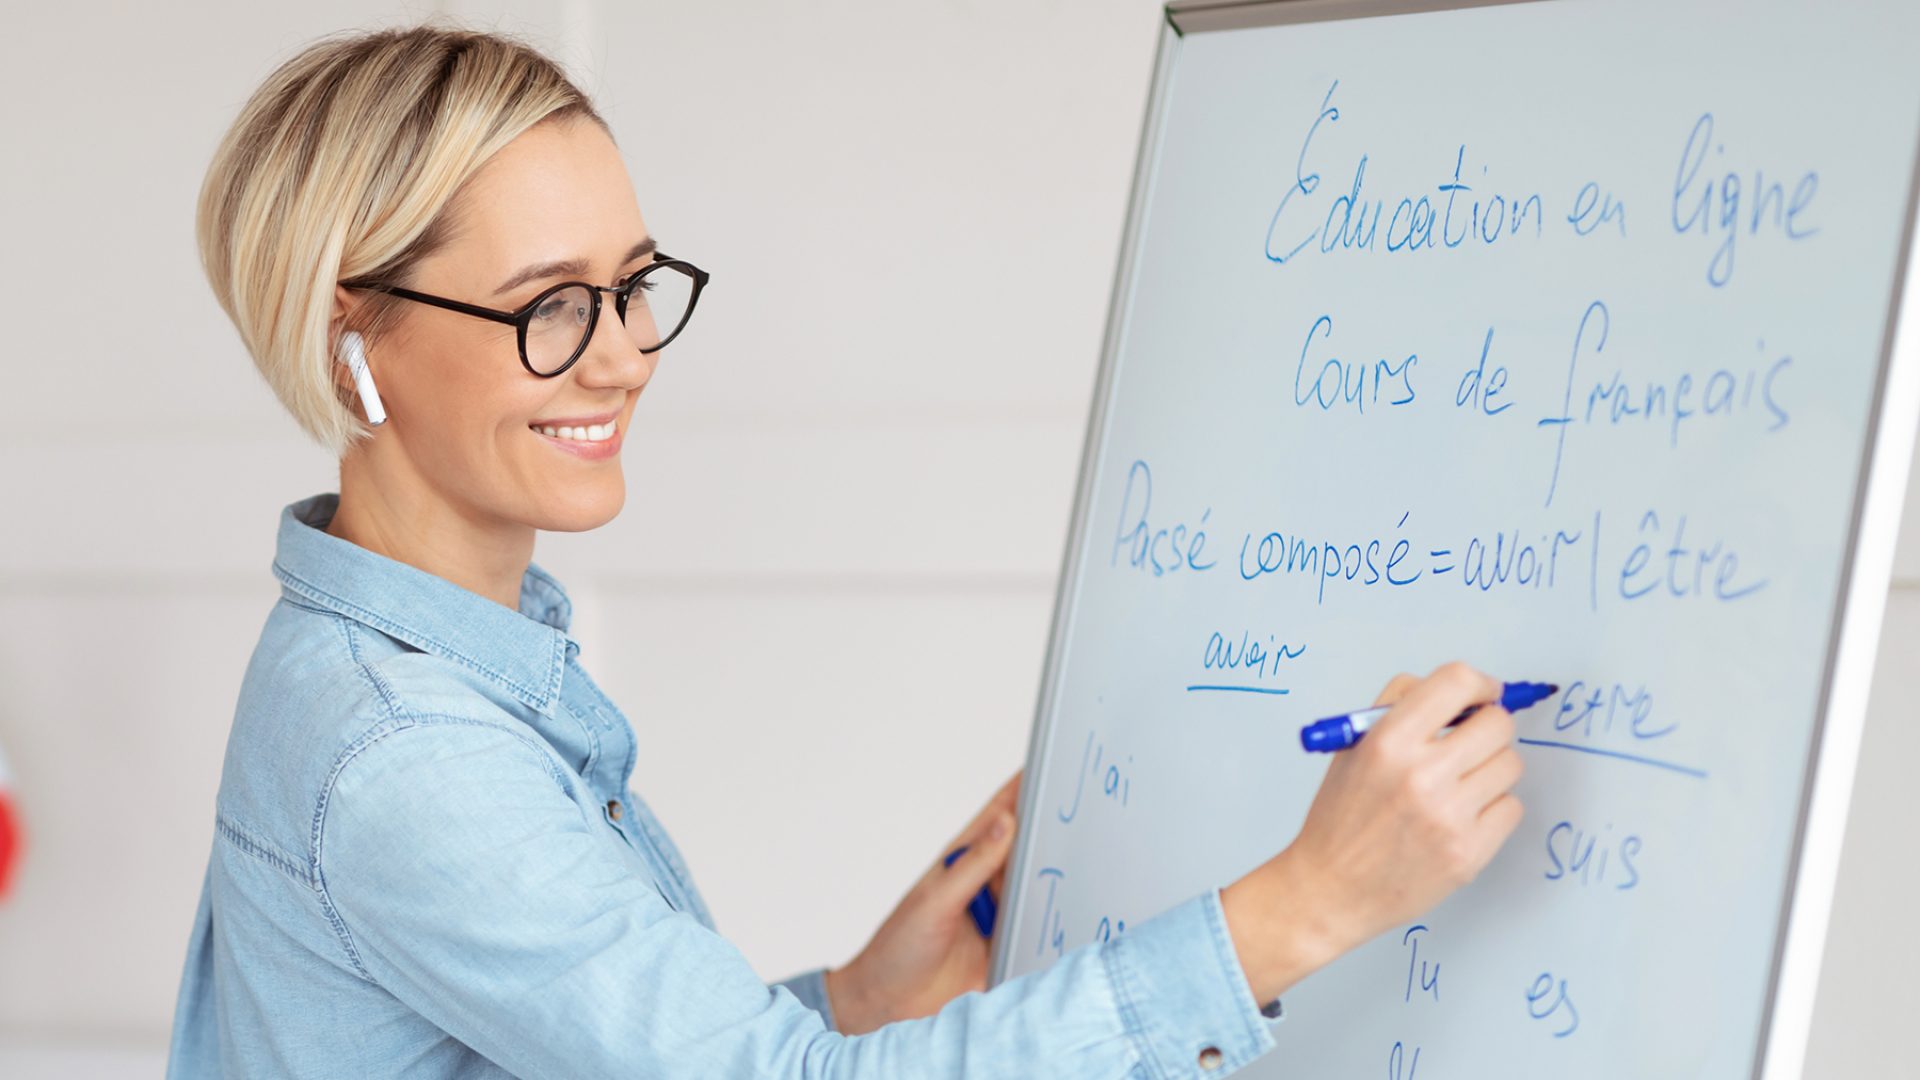 Éducation en ligne
Cours de français
Passé composé = avoir | être
avoir être
j'ai suis
Tu
Tu es